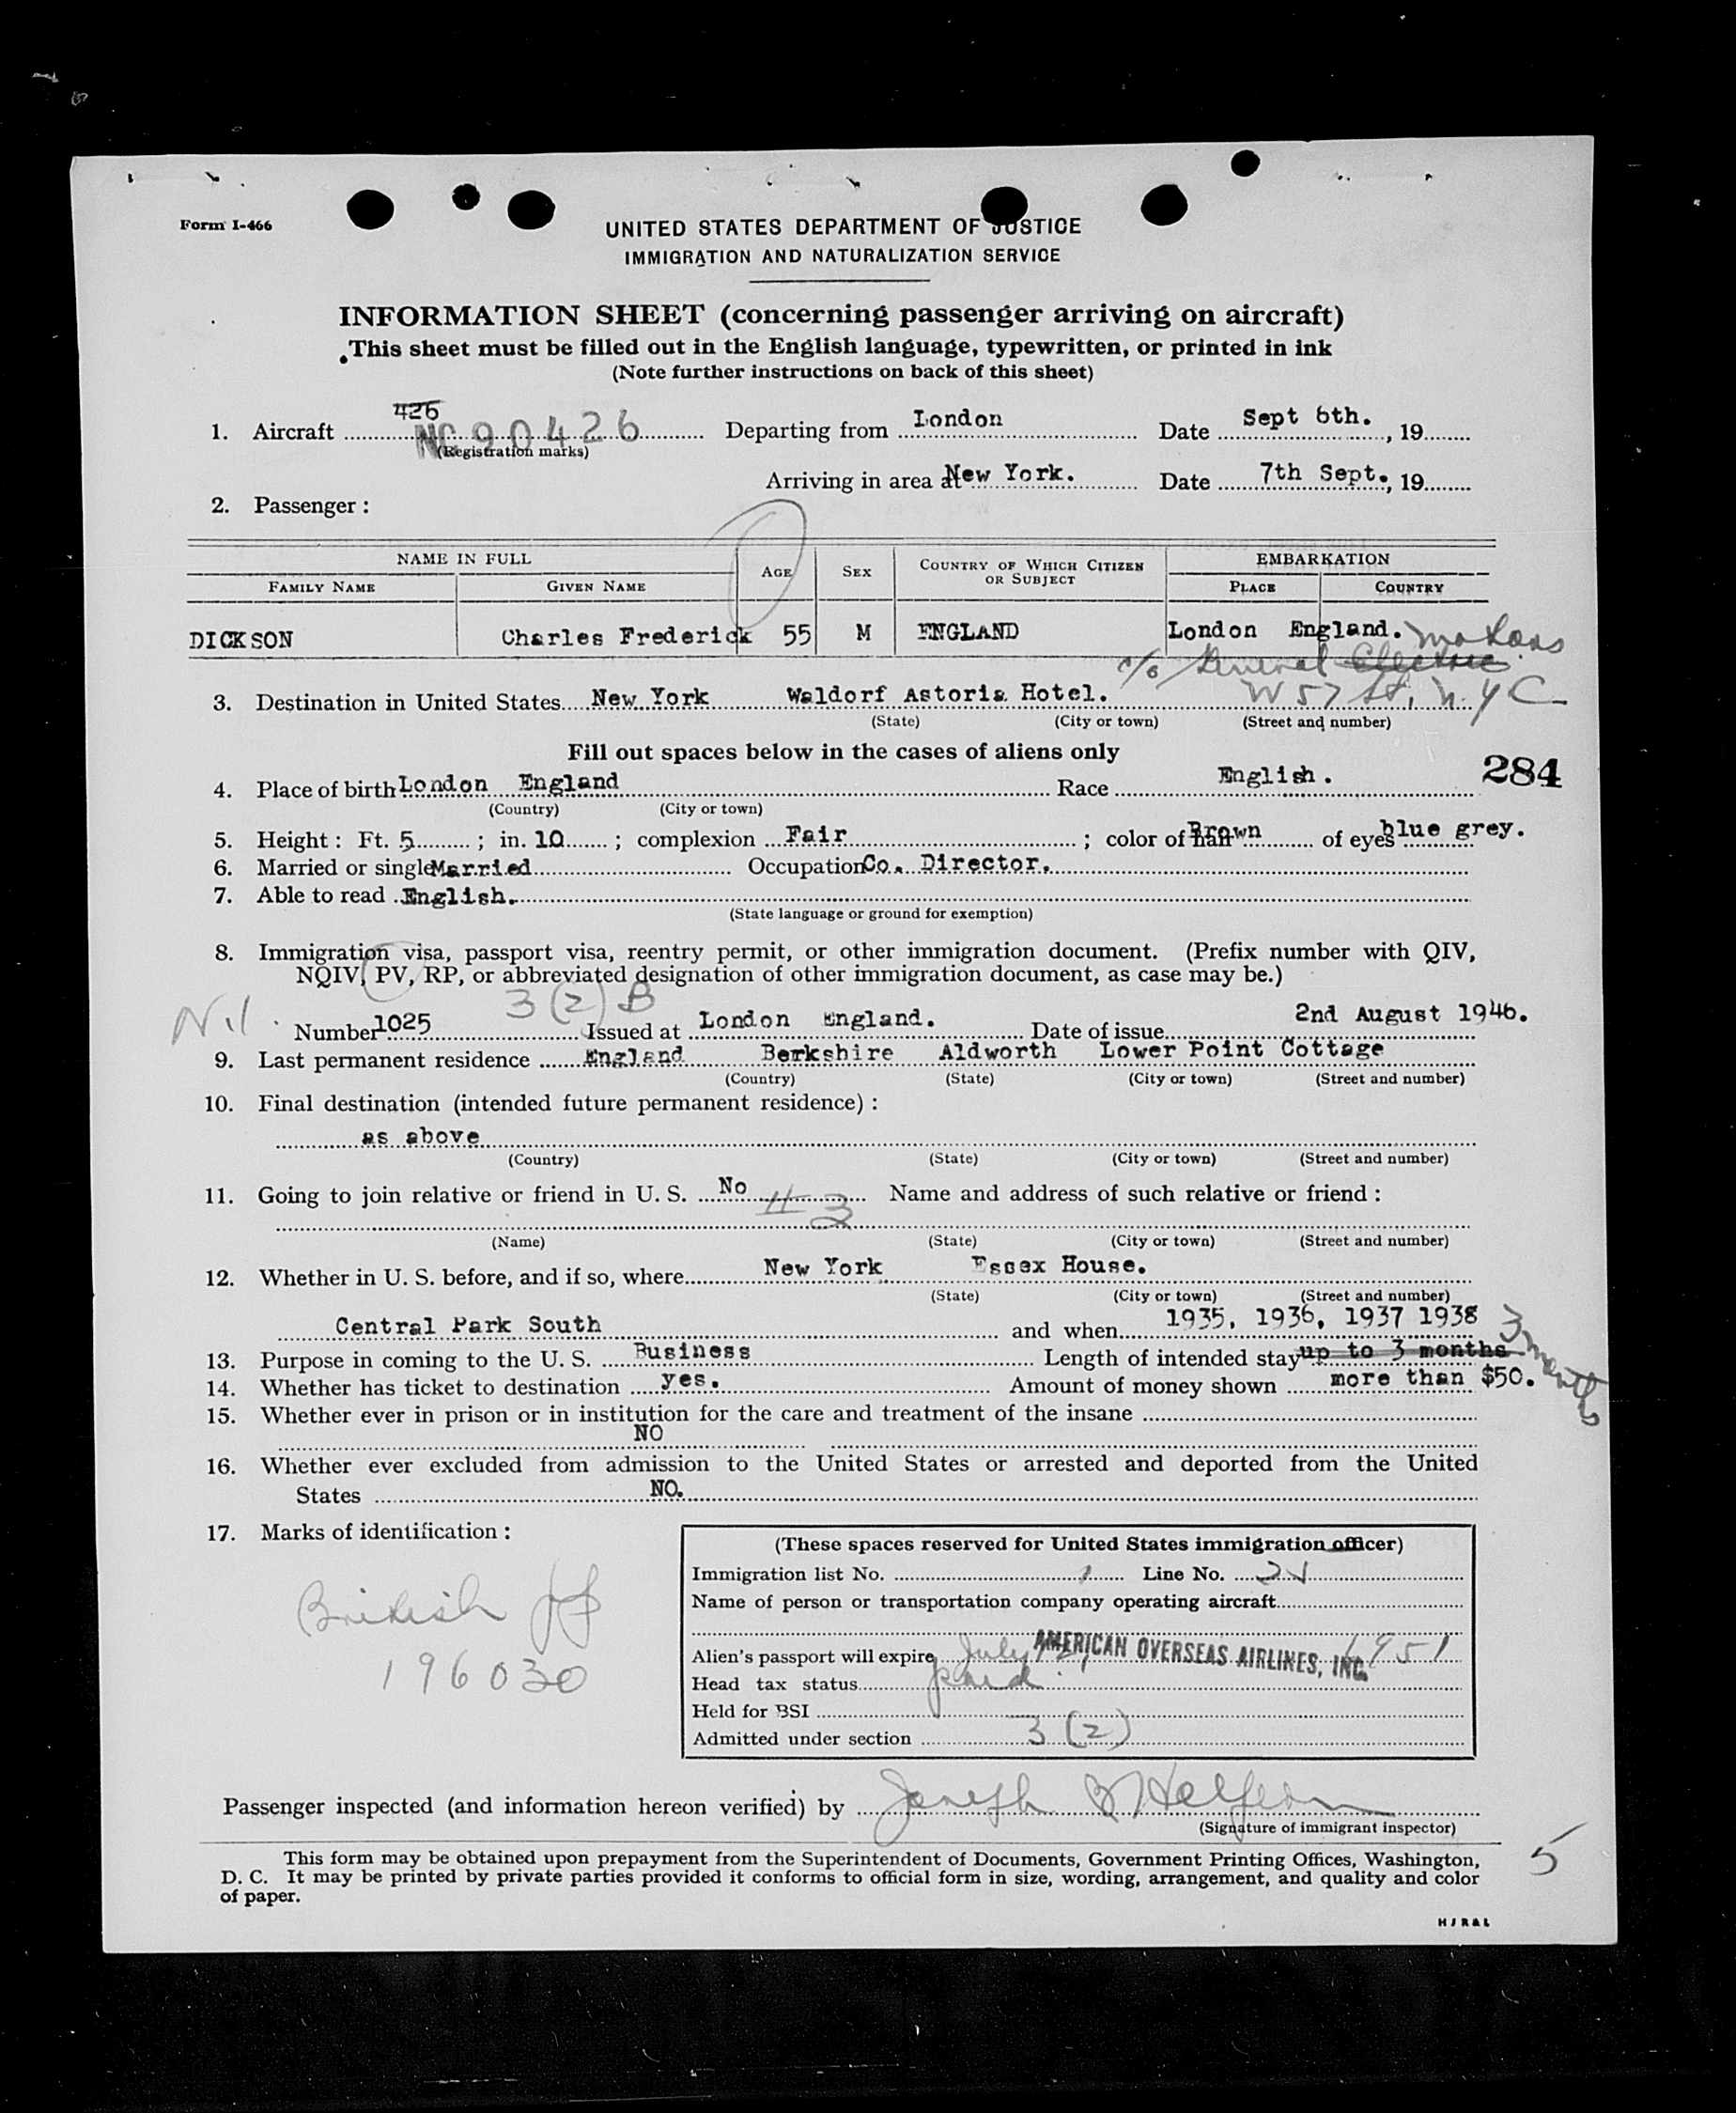 Form I-466
UNITED STATES DEPARTMENT OF JUSTICE
IMMIGRATION AND NATURALIZATION SERVICE
INFORMATION SHEET (concerning passenger arriving on aircraft)
This sheet must be filled out in the English language, typewritten, or printed in ink
(Note further instructions on back of this sheet)
426
1. Aircraft NC 90426 Departing from London Date Sept 6th. , 19
(Registration marks)
Arriving in area at New York. Date 7th Sept. , 19
2. Passenger :
NAME IN FULL AGE SEX COUNTRY OF WHICH CITIZEN OR SUBJECT EMBARKATION
FAMILY NAME GIVEN NAME PLACE COUNTRY
DICKSON Charles Frederick 55 M ENGLAND London England.
c/o General Electric Motors
3. Destination in United States New York Waldorf Astoria Hotel. W 57 St, N.Y C
(State) (City or town) (Street and number)
Fill out spaces below in the cases of aliens only
284
4. Place of birth London England Race English.
(Country) (City or town)
5. Height : Ft. 5 ; in. 10 ; complexion Fair ; color of hair Brown of eyes blue grey.
6. Married or single Married Occupation Co. Director.
7. Able to read English.
(State language or ground for exemption)
8. Immigration visa, passport visa, reentry permit, or other immigration document. (Prefix number with QIV,
NQIV, PV, RP, or abbreviated designation of other immigration document, as case may be.)
Nil 3(2) B
Number 1025 Issued at London England. Date of issue 2nd August 1946.
9. Last permanent residence England Berkshire Aldworth Lower Point Cottage
(Country) (State) (City or town) (Street and number)
10. Final destination (intended future permanent residence) :
as above
(Country) (State) (City or town) (Street and number)
11. Going to join relative or friend in U. S. No #3 Name and address of such relative or friend :
(Name) (State) (City or town) (Street and number)
12. Whether in U. S. before, and if so, where New York Essex House.
(State) (City or town) (Street and number)
Central Park South and when 1935, 1936, 1937 1938
13. Purpose in coming to the U. S. Business Length of intended stay up to 3 months 3 months
14. Whether has ticket to destination yes. Amount of money shown more than $50.
15. Whether ever in prison or in institution for the care and treatment of the insane
NO
16. Whether ever excluded from admission to the United States or arrested and deported from the United
States NO.
17. Marks of identification :
British PP
196030
(These spaces reserved for United States immigration officer)
Immigration list No. 1 Line No. 21
Name of person or transportation company operating aircraft
AMERICAN OVERSEAS AIRLINES, INC.
Alien's passport will expire July 1951
Head tax status paid
Held for BSI
Admitted under section 3 (2)
Passenger inspected (and information hereon verified) by Joseph
(Signature of immigrant inspector)
This form may be obtained upon prepayment from the Superintendent of Documents, Government Printing Offices, Washington,
D. C. It may be printed by private parties provided it conforms to official form in size, wording, arrangement, and quality and color
of paper.
5
HJR&L